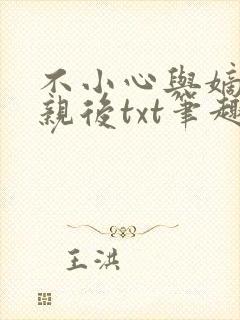 不小心與嫡
親後txt筆趣
王洪